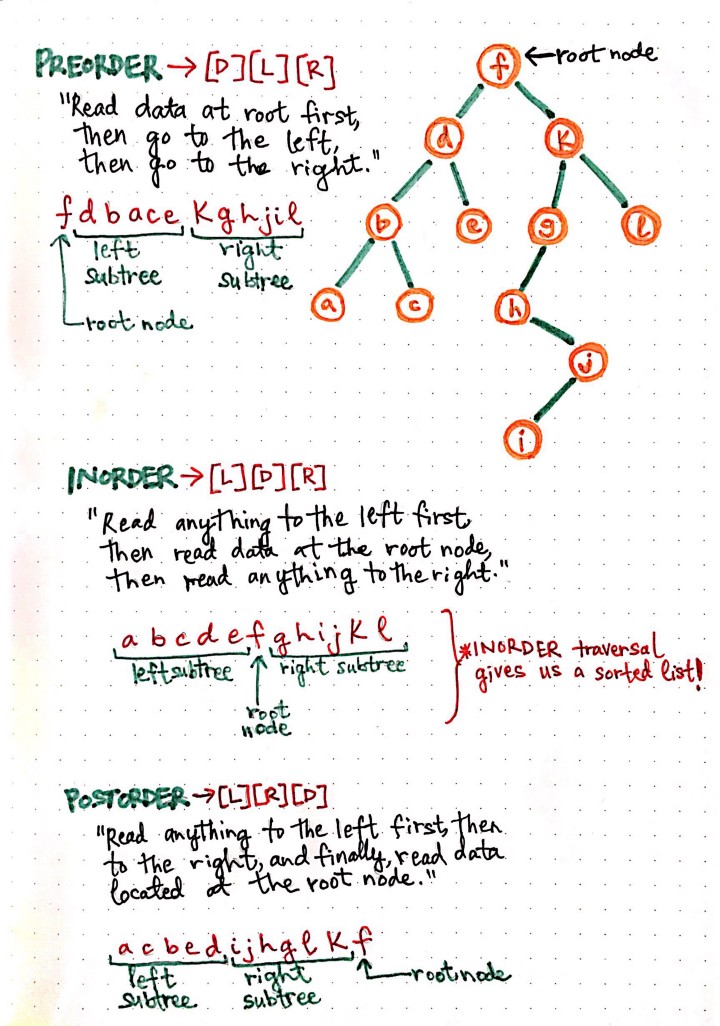 PREORDER → [D][L][R]
"Read data at root first,
then go to the left,
then go to the right."
f d b a c e K g h j i l
left subtree
right subtree
root node
←root node
f
d
K
b
e
g
l
a
c
h
j
i
INORDER → [L][D][R]
"Read anything to the left first,
then read data at the root node,
then read anything to the right."
a b c d e f g h i j K l
left subtree
root node
right subtree
*INORDER traversal
gives us a sorted list!
POSTORDER → [L][R][D]
"Read anything to the left first, then
to the right, and finally, read data
located at the root node."
a c b e d i j h g l K f
left subtree
right subtree
root node